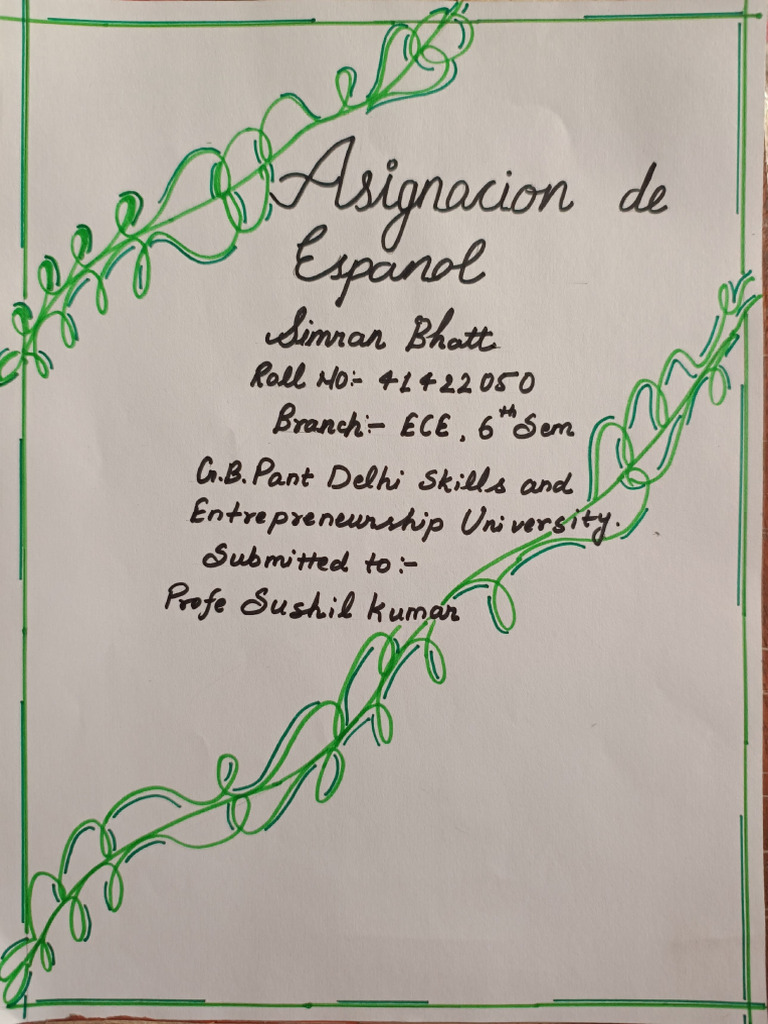 Asignacion de
Espanol
Simran Bhatt
Roll No:- 41422050
Branch:- ECE, 6th Sem
G.B.Pant Delhi Skills and
Entrepreneurship University.
Submitted to:-
Profe Sushil Kumar